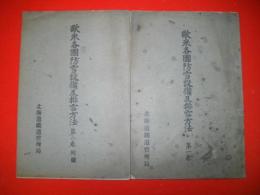 歐米各國防雪設備及排雪方法 第一卷
北海道鐵道管理局
歐米各國防雪設備及排雪方法 第一卷附圖
北海道鐵道管理局